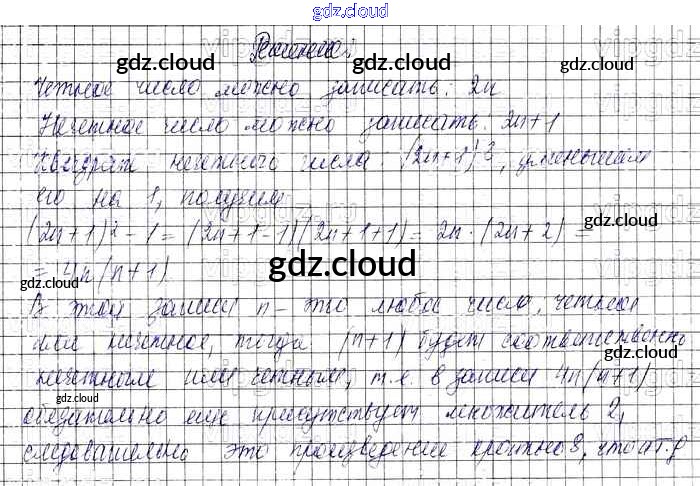 gdz.cloud
Решение:
gdz.cloud gdz.cloud
Четное число можно записать: 2n
Нечетное число можно записать: 2n+1
Квадрат нечетного числа (2n+1)², уменьшим
gdz.cloud
его на 1, получим
(2n+1)² - 1 = (2n+1-1)(2n+1+1) = 2n·(2n+2) =
gdz.cloud
= 4n(n+1)
gdz.cloud
В этой записи n - это любое число, четное
или нечетное, тогда (n+1) будет соответственно
gdz.cloud
нечетным или четным, т.е. в записи 4n(n+1)
gdz.cloud
обязательно еще присутствует множитель 2,
следовательно это произведение кратно 8, что и т.д
gdz.cloud gdz.cloud